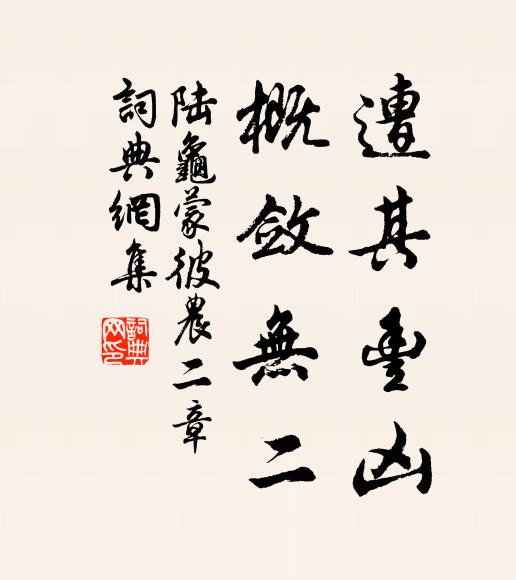 遭其豐凶
概斂無二
陆龜蒙彼農二章
詞典網集
詞典網印